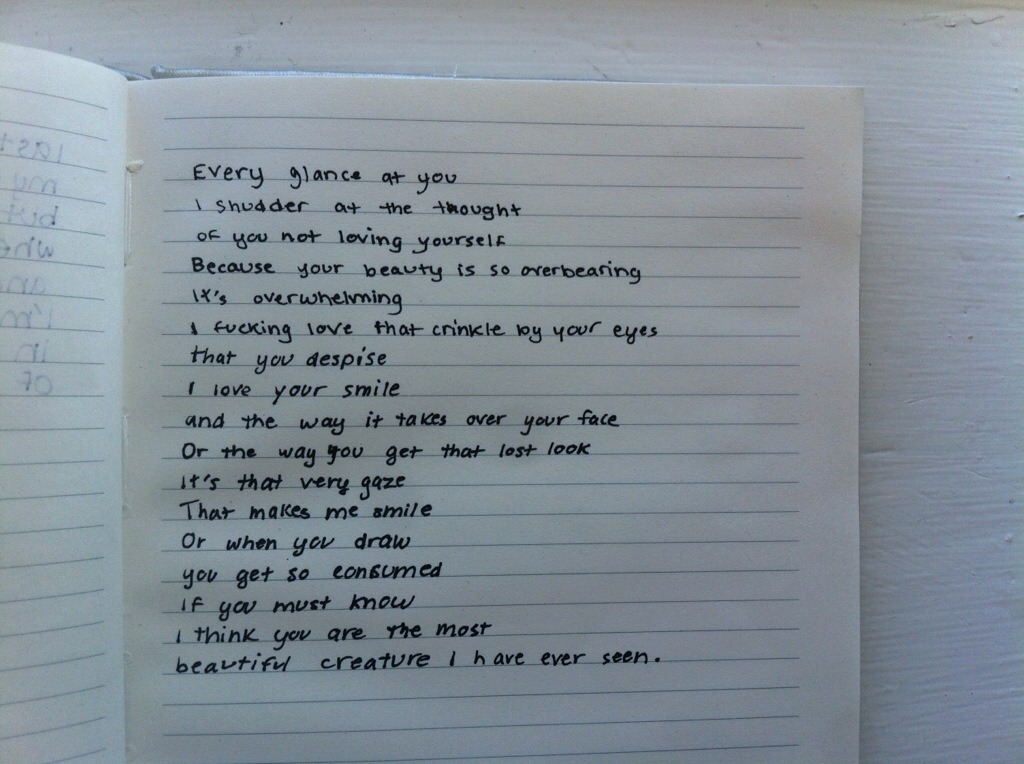 Every glance at you
I shudder at the thought
of you not loving yourself
Because your beauty is so overbearing
It's overwhelming
I fucking love that crinkle by your eyes
that you despise
I love your smile
and the way it takes over your face
Or the way you get that lost look
It's that very gaze
That makes me smile
Or when you draw
you get so consumed
If you must know
I think you are the most
beautiful creature I have ever seen.